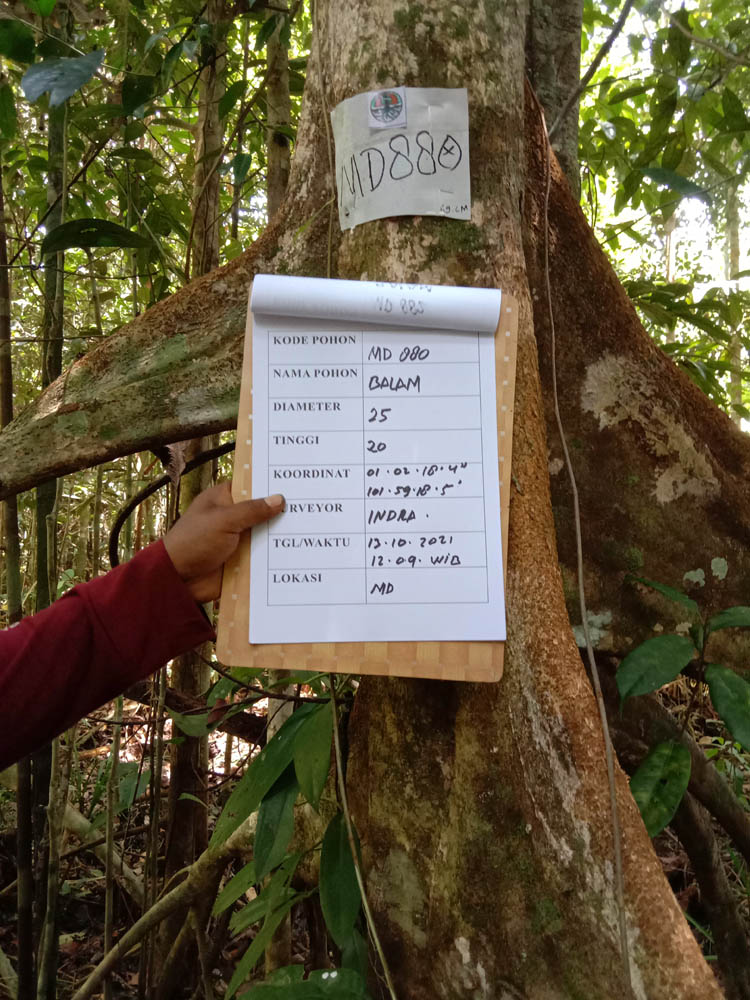 MD880
29.CM
MD 885
KODE POHON MD 880
NAMA POHON BALAM
DIAMETER 25
TINGGI 20
KOORDINAT 01.02.18.4"
101.59.18.5"
SURVEYOR INDRA.
TGL/WAKTU 13.10.2021
12.09. WIB
LOKASI MD